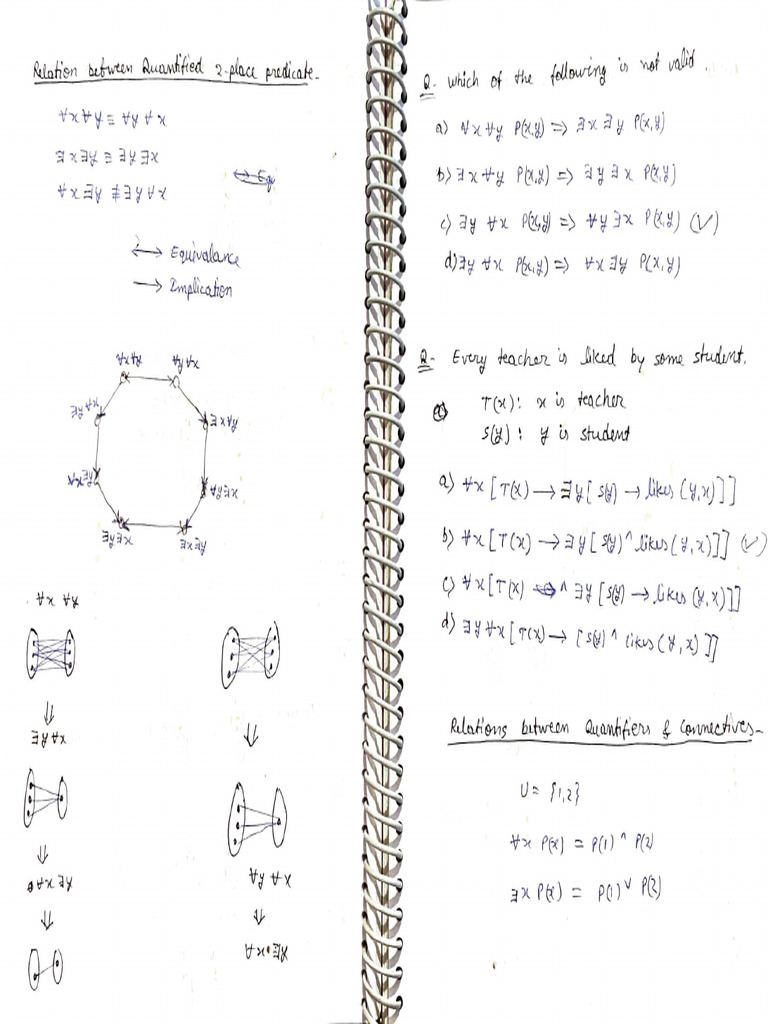 Relation between Quantified 2-place predicate-
∀x∀y ≡ ∀y∀x
∃x∃y ≡ ∃y∃x
∀x∃y ≢ ∃y∀x
⟷ Equivalance
⟶ Implication
∀x∀y
∀y∀x
∃y∀x
∃x∀y
∀x∃y
∀y∃x
∃y∃x
∃x∃y
∀x ∀y
⇓
∃y∀x
⇓
∀x∃y
⇓
⇓
∀y ∀x
⇓
∀x∃y
Q- which of the following is not valid.
a) ∀x ∀y P(x,y) => ∃x ∃y P(x,y)
b) ∃x ∀y P(x,y) => ∃y ∃x P(x,y)
c) ∃y ∀x P(x,y) => ∀y ∃x P(x,y) (✓)
d) ∃y ∀x P(x,y) => ∀x ∃y P(x,y)
Q- Every teacher is liked by some student.
T(x): x is teacher
S(y): y is student
a) ∀x [T(x) → ∃y [S(y) → likes (y,x)]]
b) ∀x [T(x) → ∃y [S(y) ^ likes (y,x)]] (✓)
c) ∀x [T(x) ^ ∃y [S(y) → likes (y,x)]]
d) ∃y ∀x [T(x) → [S(y) ^ likes (y,x)]]
Relations between Quantifiers & Connectives-
U = {1,2}
∀x P(x) = P(1) ^ P(2)
∃x P(x) = P(1) ∨ P(2)